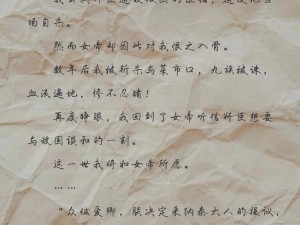 场自杀。
然而女帝却因此对我恨之入骨。
数年后我被斩杀与菜市口，九族被诛，
血流遍地，惨不忍睹！
再度睁眼，我回到了女帝听信奸臣想要
与敌国议和的一刻。
这一世我将如女帝所愿。
……
“众位爱卿，朕决定采纳秦大人的提议，